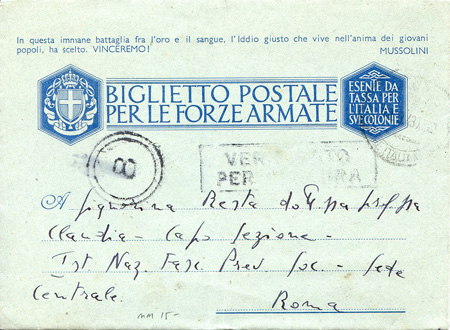 In questa immane battaglia fra l'oro e il sangue, l'Iddio giusto che vive nell'anima dei giovani
popoli, ha scelto. VINCEREMO!
MUSSOLINI
BIGLIETTO POSTALE
PER LE FORZE ARMATE
ESENTE DA
TASSA PER
L'ITALIA E
SVE COLONIE
8
VER
PER
A Signorina Resta
Claudia - Capo Sezione -
Ist. Naz. Fasc. Prev. Soc. - Sede
Centrale.
Roma
MM 15-